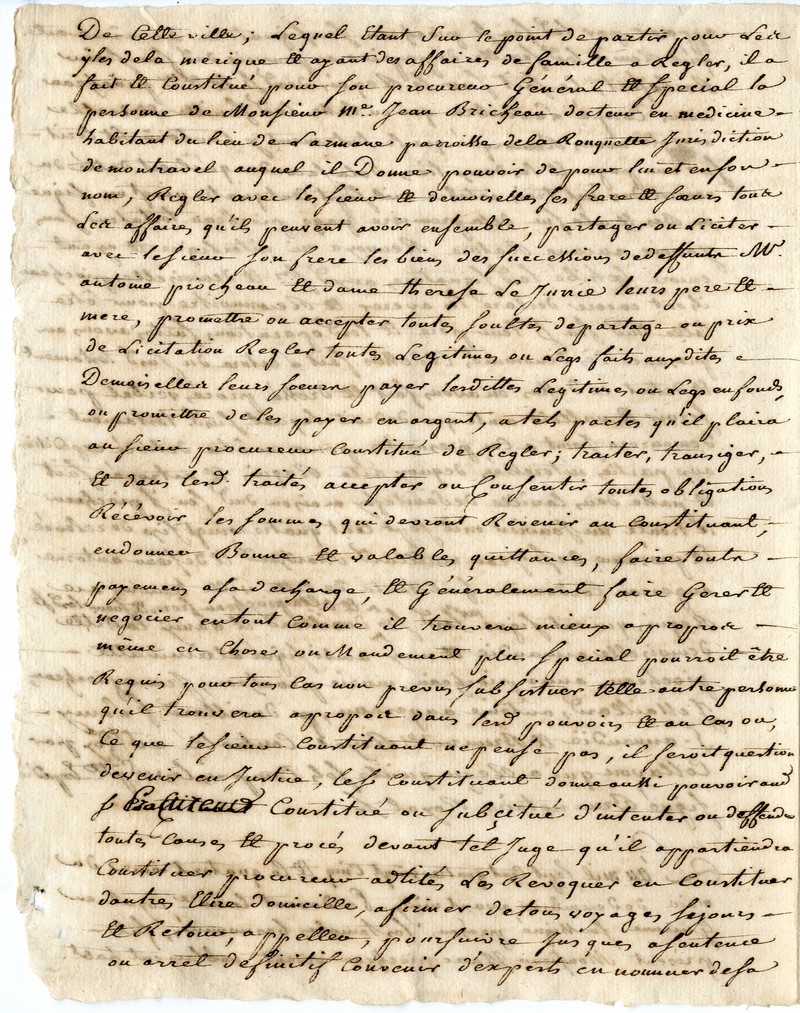 De Cette ville; Lequel Etant Sur le point de partir pour Les
yles dela merique Et ayant des affaires de famille a Regler, il a
fait Et Constitué pour son procureur Général Et special la
personne de Monsieur Me. Jean Bricheau docteur en medicine
habitant du lieu de Larmane parroisse dela Rouquette Jurisdiction
de montravel auquel il Donne pouvoir de pour lui et en son
nom, Regler avec les sieur Et demoiselles ses frere Et sœurs toutes
Les affaires qu'ils peuvent avoir ensemble, partager ou Liciter
avec le sieur son frere les biens des successions de deffunts Mr.
antoine procheau Et dame therese Le Junie leurs pere Et
mere, promettre ou accepter toutes soultes de partage ou prix
de Licitation Regler toutes Legitimes ou Legs faits auxdites
Demoiselles leurs sœurs payer lesdittes Legitimes ou Legs en fonds,
ou promettre de les payer en argent, a tels pactes qu'il plaira
au sieur procureur Constitué de Regler; traiter, transiger,
Et dans lesd. traités accepter ou Consentir toutes obligations
Récévoir les sommes qui devront Revenir au Constituant,
en donner Bonne Et valables quittances, faire touts
payemens a sa decharge, Et Généralement faire Gerer Et
negocier entout Comme il trouvera mieux a propos
même en Chose ou Mandement plus special pourroit être
Requis pour tous Cas non prevus subsistuer telle autre personne
qu'il trouvera a propos dans lesd. pouvoirs Et au Cas ou,
Ce que le sieur Constituant ne pense pas, il seroit question
de venir en Justice, led. s Constituant donne aussi pouvoir aud.
s Constitué ou subcitué d'intenter ou deffendre
toutes Causes Et procés devant tel Juge qu'il appartiendra
Constituer procureur adlités Les Revoquer en Constituer
dautres Elire domicille, afirmer de tous voyages sejours
Et Retour, appeller, poursuivre Jusques a sentence
ou arret definitif Convenir d'experts en nommer de sa